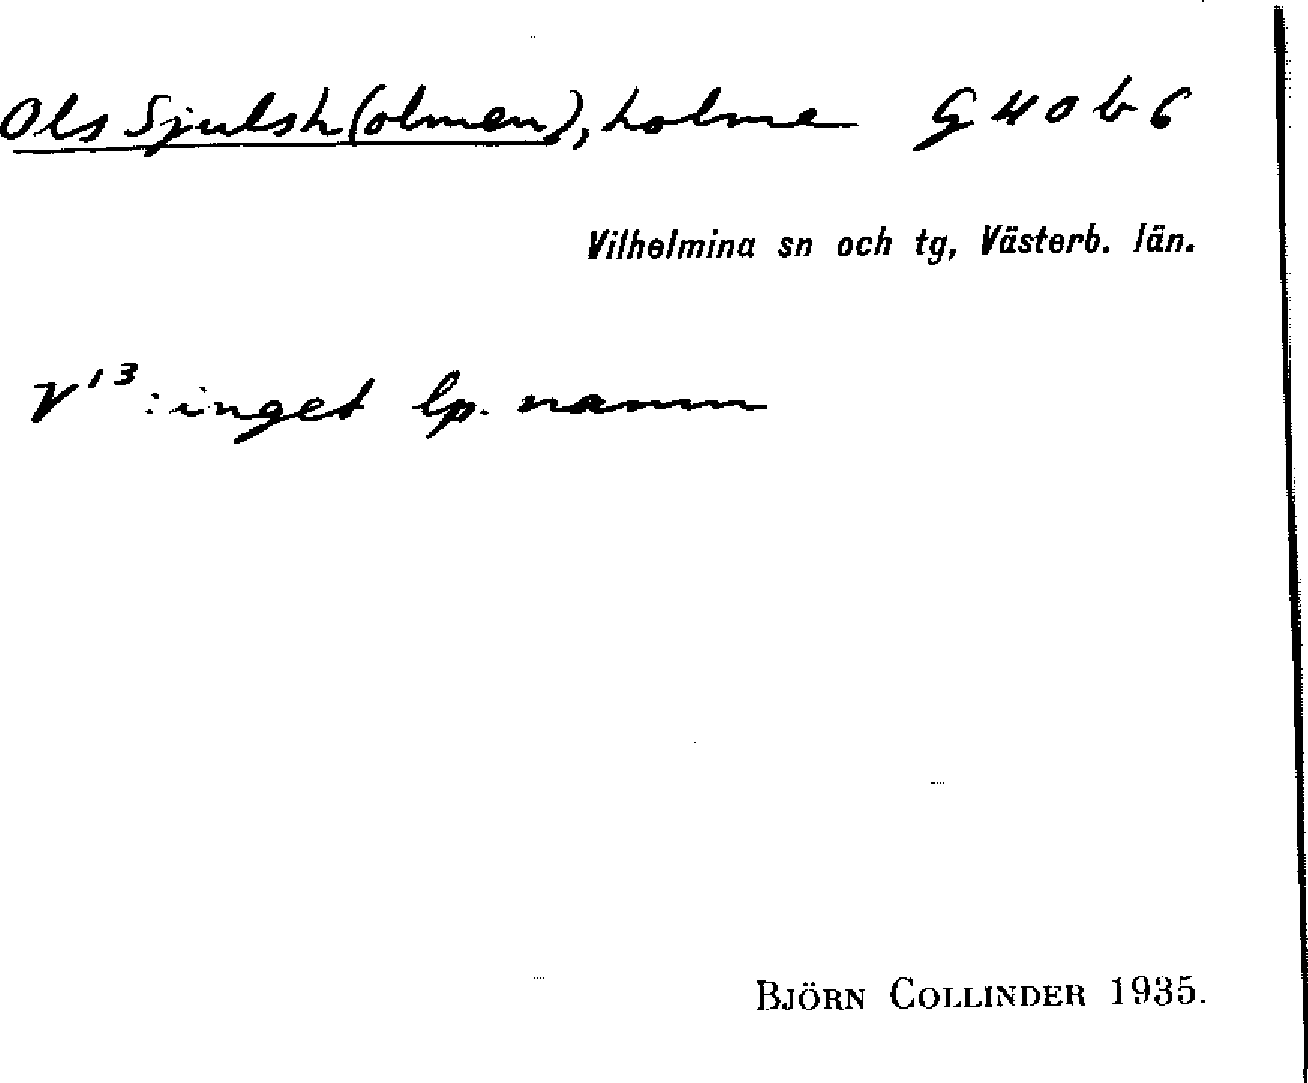 Ols Sjulsh(olmen), holme G 40 b 6
Vilhelmina sn och tg, Västerb. län.
V13: inget lp. namn
BJÖRN COLLINDER 1935.